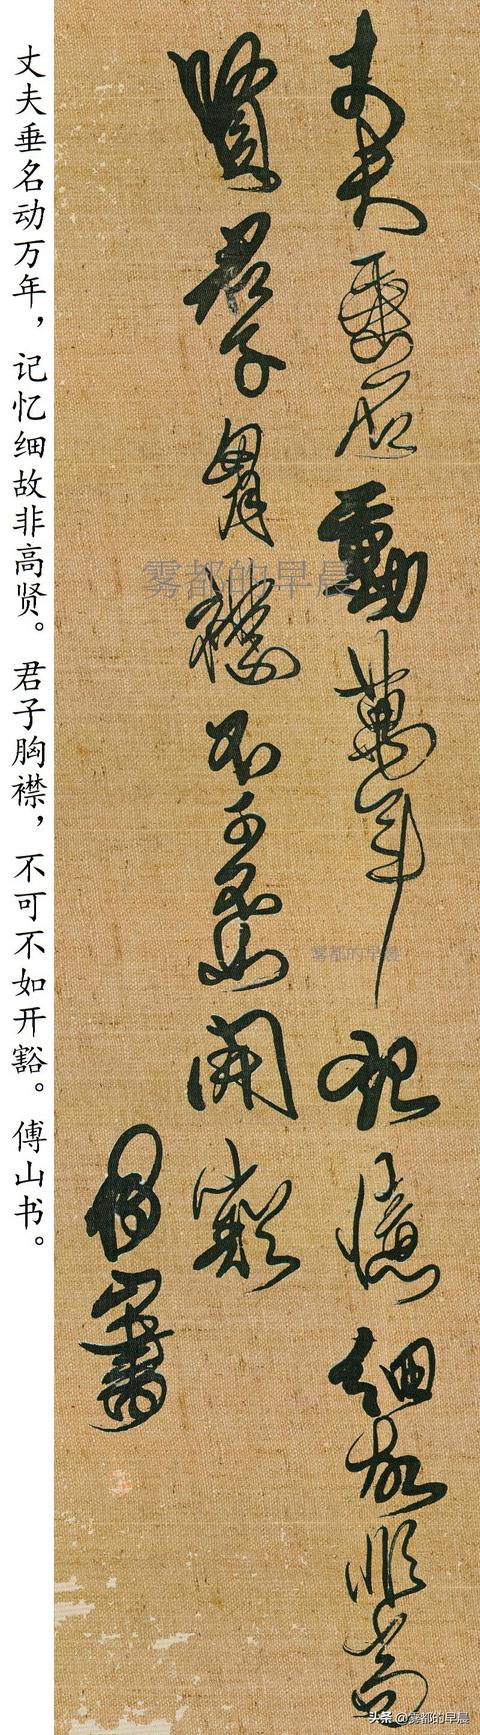 丈夫垂名動萬年記憶細故非高
賢君子胸襟不可不如開豁
傅山書
丈夫垂名动万年，记忆细故非高贤。君子胸襟，不可不如开豁。傅山书。
雾都的早晨
雾都的早晨
头条 @雾都的早晨